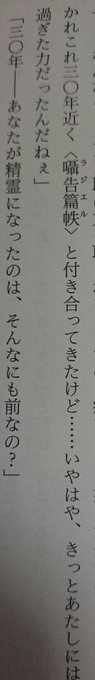 かれこれ三〇年近く〈囁告篇帙〉と付き合ってきたけど……いやはや、きっとあたしには
ラジエル
過ぎた力だったんだねぇ」
「三〇年――あなたが精霊になったのは、そんなにも前なの?」